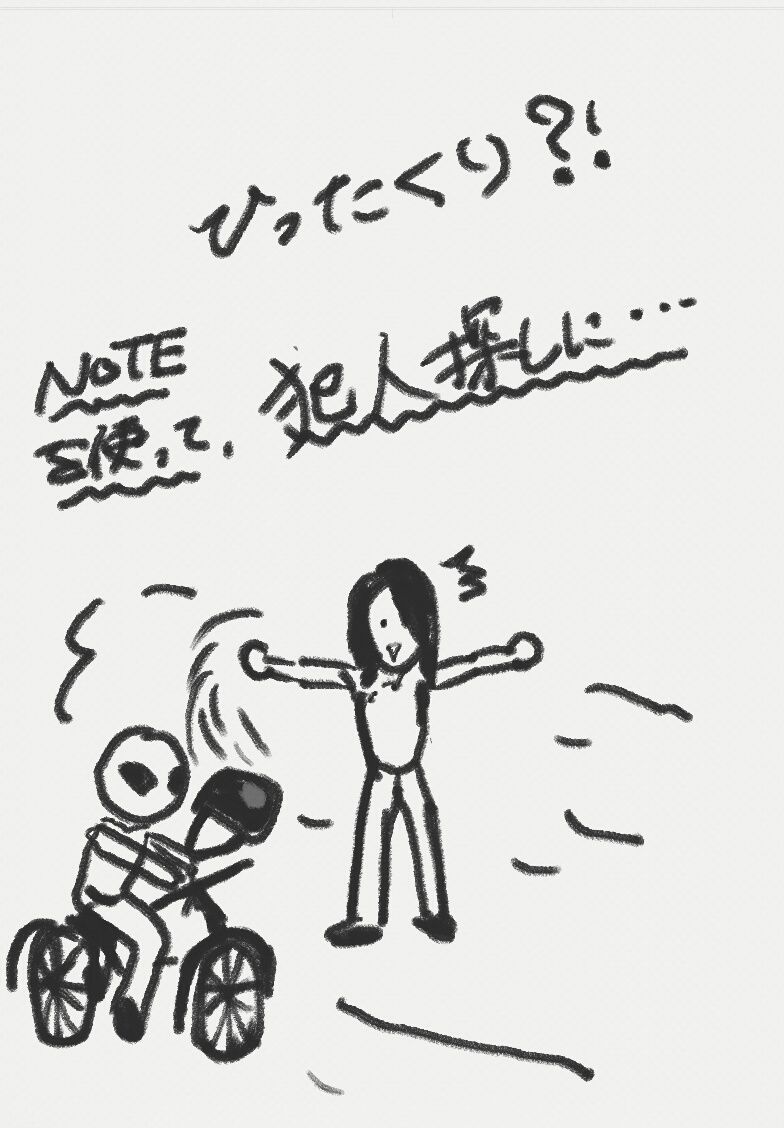 ひったくり?!
NOTE
を使って、犯人探しに・・・